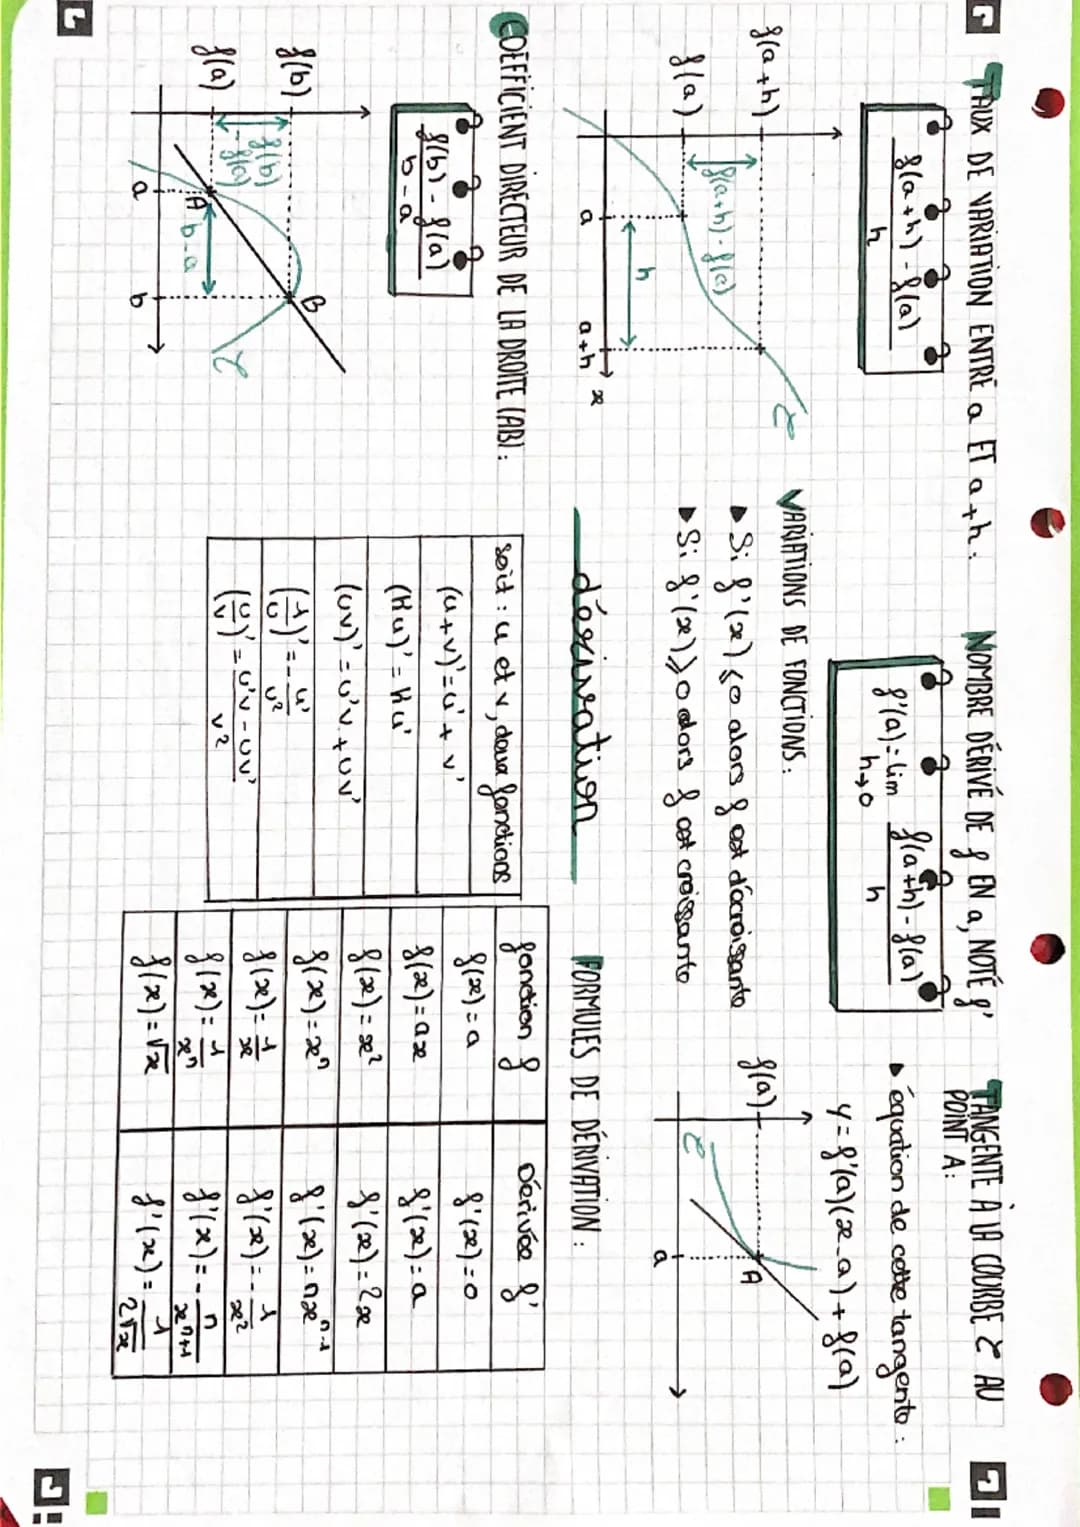 TAUX DE VARIATION ENTRE a ET a+h :
f(a+h) - f(a)
h
f(a+h)
f(a)
f(a+h) - f(a)
h
a
a+h
x
C
COEFFICIENT DIRECTEUR DE LA DROITE (AB) :
f(b) - f(a)
b - a
f(b)
f(a)
f(b)
- f(a)
b - a
A
B
a
b
C
NOMBRE DÉRIVÉ DE f EN a, NOTÉ f'
f'(a) = lim f(a+h) - f(a)
h→0 h
VARIATIONS DE FONCTIONS :
▸ Si f'(x) ⩽ 0 alors f est décroissante
▸ Si f'(x) ⩾ 0 alors f est croissante
dérivation
soit : u et v, deux fonctions
(u+v)' = u' + v'
(ku)' = ku'
(uv)' = u'v + uv'
(1/u)' = - u'/u²
(u/v)' = u'v - uv' / v²
TANGENTE À LA COURBE C AU
POINT A :
▸ équation de cette tangente :
y = f'(a)(x-a) + f(a)
f(a)
C
A
a
FORMULES DE DÉRIVATION :
fonction f | Dérivée f'
f(x) = a | f'(x) = 0
f(x) = ax | f'(x) = a
f(x) = x² | f'(x) = 2x
f(x) = xⁿ | f'(x) = nxⁿ⁻¹
f(x) = 1/x | f'(x) = - 1/x²
f(x) = 1/xⁿ | f'(x) = - n/xⁿ⁺¹
f(x) = √x | f'(x) = 1/2√x